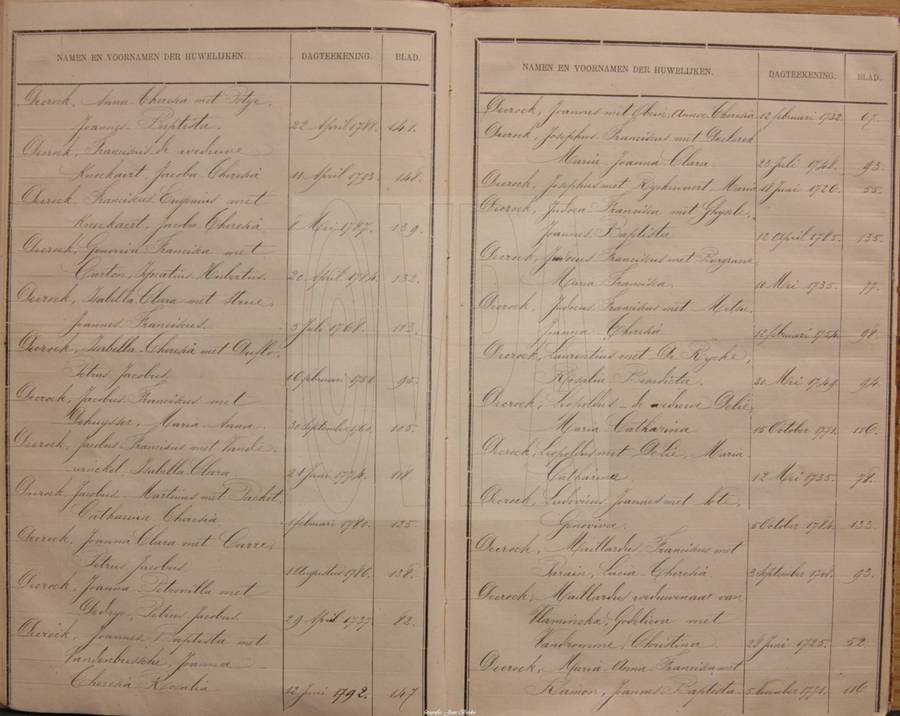 NAMEN EN VOORNAMEN DER HUWELIJKEN. DAGTEEKENING. BLAD.
Decrock, Anna Theresia met
Joannes Baptista. 22 April 1788. 141.
Decrock, Franciscus de weduwe
Knockaert, Jacoba Theresia 11 April 1793. 148.
Decrock Franciscus Eugenius met
Knockaert, Jacoba Theresia 8 Mei 1787. 139.
Decrock, Genoveva Francisca met
Carton, Ignatius Hubertus. 20 April 1784. 132.
Decrock, Isabella Clara met
Joannes Franciscus. 5 Juli 1768. 112.
Decrock, Isabella Theresia met Duflo,
Petrus Jacobus. 95.
Decrock, Jacobus Franciscus met
Dehuysser, Maria Anna 30 September 1760. 105.
Decrock, Jacobus Franciscus met
Isabella Clara 21 Juni 1774. 118.
Decrock, Jacobus Martinus met
Catharina Theresia 1 februari 1780. 125.
Decrock, Joanna Clara met
Petrus Jacobus 1 Augustus 1786. 138.
Decrock, Joanna Petronilla met
Petrus Jacobus 29 April 1737. 82.
Decrock, Joannes Baptista met
Vandenbussche, Joanna
Theresia Rosalia 12 Juni 1792. 147
NAMEN EN VOORNAMEN DER HUWELIJKEN. DAGTEEKENING. BLAD.
Decrock, Joannes met Anna Theresia 12 februari 1732. 67.
Decrock, Josephus Franciscus met Declerck
Maria Joanna Clara. 23 Juli 1748. 93.
Decrock, Josephus met Maria 18 Juni 1726. 55.
Decrock, Judoca Francisca met Ghysele,
Joannes Baptista 12 April 1785. 135.
Decrock, Judocus Franciscus met
Maria Francisca. 10 Mei 1735. 77.
Decrock, Judocus Franciscus met
Joanna Theresia 12 februari 1754. 98.
Decrock, Laurentius met De Rycke,
Rosalia Benedicta. 20 Mei 94.
Decrock, Leopoldus de weduwe Delie,
Maria Catharina 15 October 1771. 116.
Decrock, Leopoldus met Delie, Maria
Catharina 12 Mei 1735. 78.
Decrock, Ludovicus Joannes met
Genoviva. 5 October 1784. 133.
Decrock, Maillardus Franciscus met
Lucia Theresia 3 September 1748. 93.
Decrock, Maillardus weduwenaar van
Godelieva met
Vandromme, Christina 28 Juni 1725. 52.
Decrock, Maria Anna Francisca met
Joannes Baptista 5 November 1771. 116